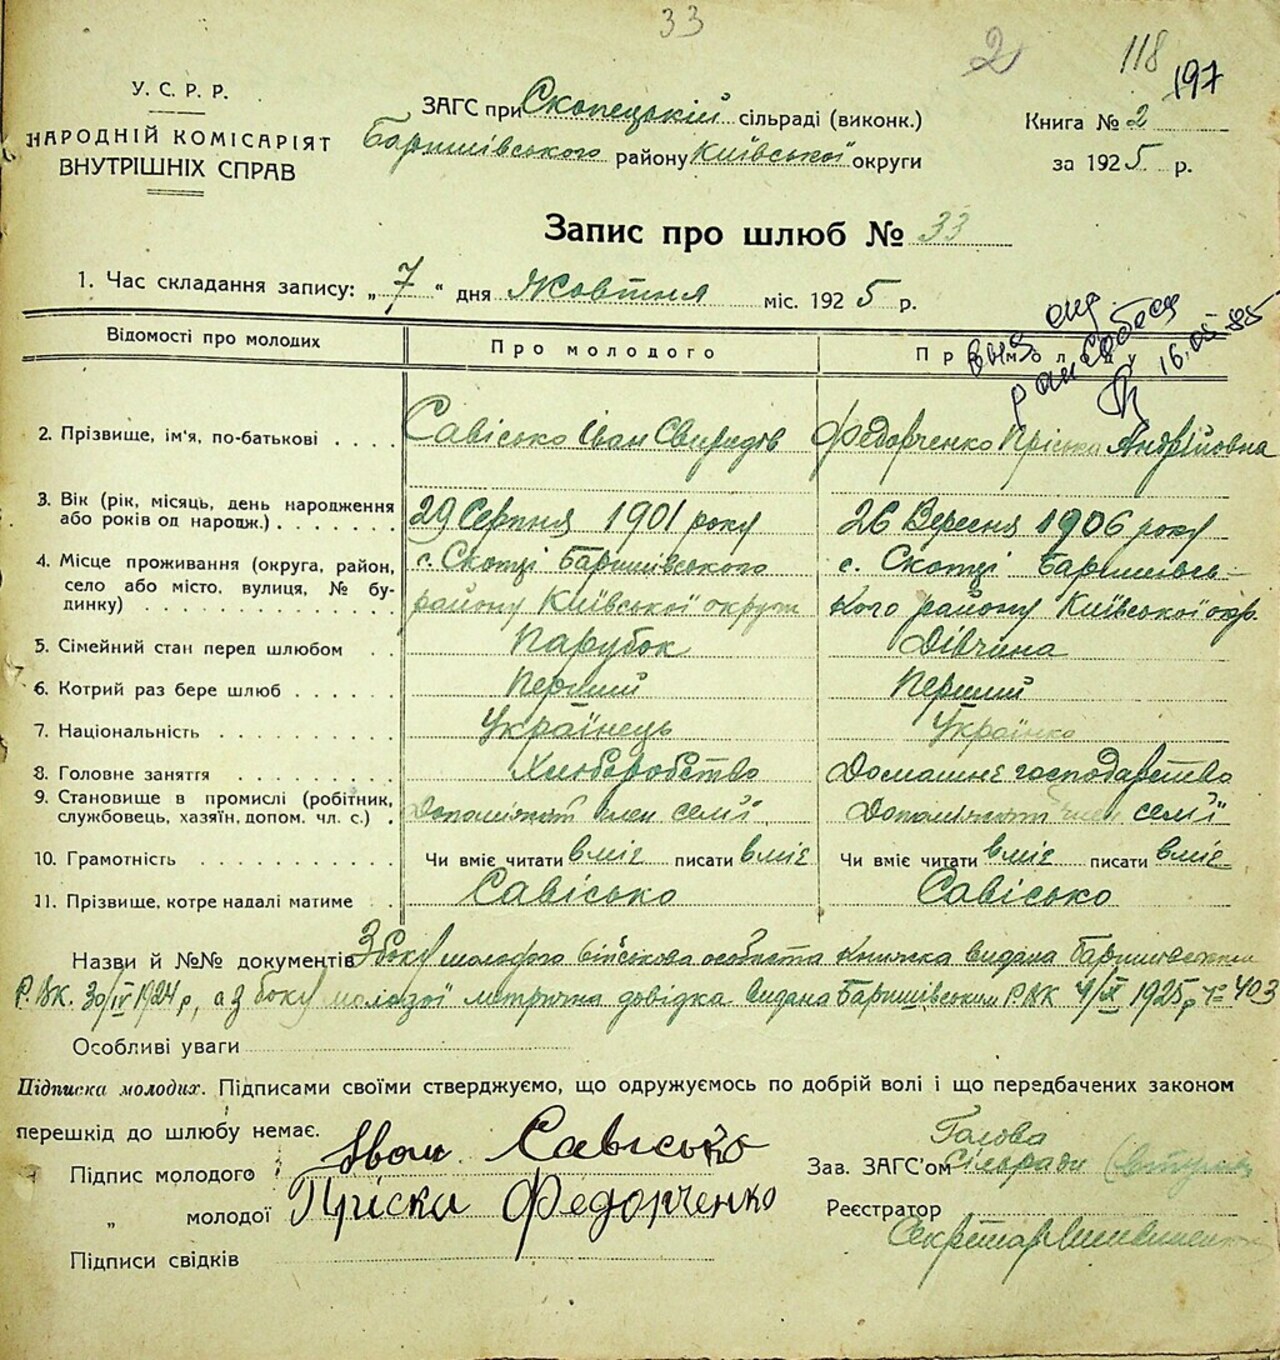 33
2
118
197
У. С. Р. Р.
НАРОДНІЙ КОМІСАРІЯТ
ВНУТРІШНІХ СПРАВ
ЗАГС при Скопецькій сільраді (виконк.)
Баришівського району Київської округи
Книга № 2
за 1925 р.
Запис про шлюб № 33
1. Час складання запису: „7“ дня Жовтня міс. 1925 р.
16.05.85
Відомості про молодих
Про молодого
Про молоду
2. Прізвище, ім'я, по-батькові . . . . Савісько Іван Свиридов Федорченко Пріська Андрійовна
3. Вік (рік, місяць, день народження
або років од народж.) . . . . . . . 29 Серпня 1901 року 26 Вересня 1906 року
4. Місце проживання (округа, район, с. Скопці Баришівського с. Скопці Баришівсь-
село або місто, вулиця, № бу-
динку) . . . . . . . . . . . . . району Київської округи кого району Київської окр.
5. Сімейний стан перед шлюбом . . Парубок Дівчина
6. Котрий раз бере шлюб . . . . . . Перший Перший
7. Національність . . . . . . . . . . Українець Українка
8. Головне заняття . . . . . . . . . Хліборобство Домашнє господарство
9. Становище в промислі (робітник,
службовець, хазяїн, допом. чл. с.) . член семії член семії
10. Грамотність . . . . . . . . . . . Чи вміє читати вміє писати вміє Чи вміє читати вміє писати вміє
11. Прізвище, котре надалі матиме . . Савісько Савісько
Назви й №№ документів З боку молодого військова особиста книжка видана
Р.ВК. 30/IV 1924 р, а з боку молодої метрична довідка видана Баришівським РВК 1925 р 403
Особливі уваги
Підписка молодих. Підписами своїми стверджуємо, що одружуємось по добрій волі і що передбачених законом
перешкід до шлюбу немає.
Підпис молодого Іван Савісько
„ молодої Пріска Федорченко
Підписи свідків
Голова
Зав. ЗАГС'ом Сільради
Реєстратор
Секретар